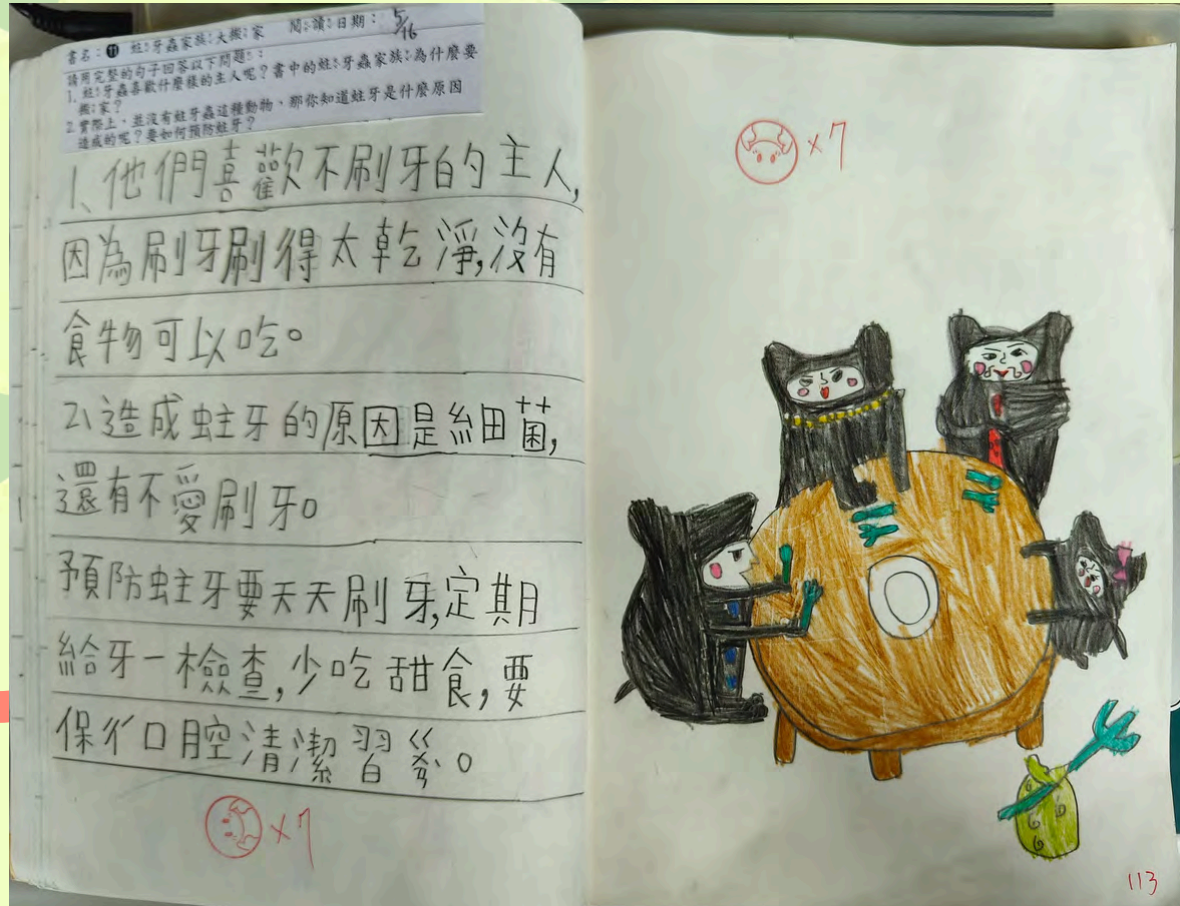 書名：⓫ 蛀牙蟲家族大搬家 閱讀日期： 5/16
請用完整的句子回答以下問題：
1. 蛀牙蟲喜歡什麼樣的主人呢？書中的蛀牙蟲家族為什麼要
搬家？
2. 實際上，並沒有蛀牙蟲這種動物，那你知道蛀牙是什麼原因
造成的呢？要如何預防蛀牙？
1、他們喜歡不刷牙的主人，
因為刷牙刷得太乾淨，沒有
食物可以吃。
2、造成蛀牙的原因是細菌，
還有不愛刷牙。
預防蛀牙要天天刷牙，定期
給牙一檢查，少吃甜食，要
保ㄔ口腔清潔習ㄍ。
×7
×7
113